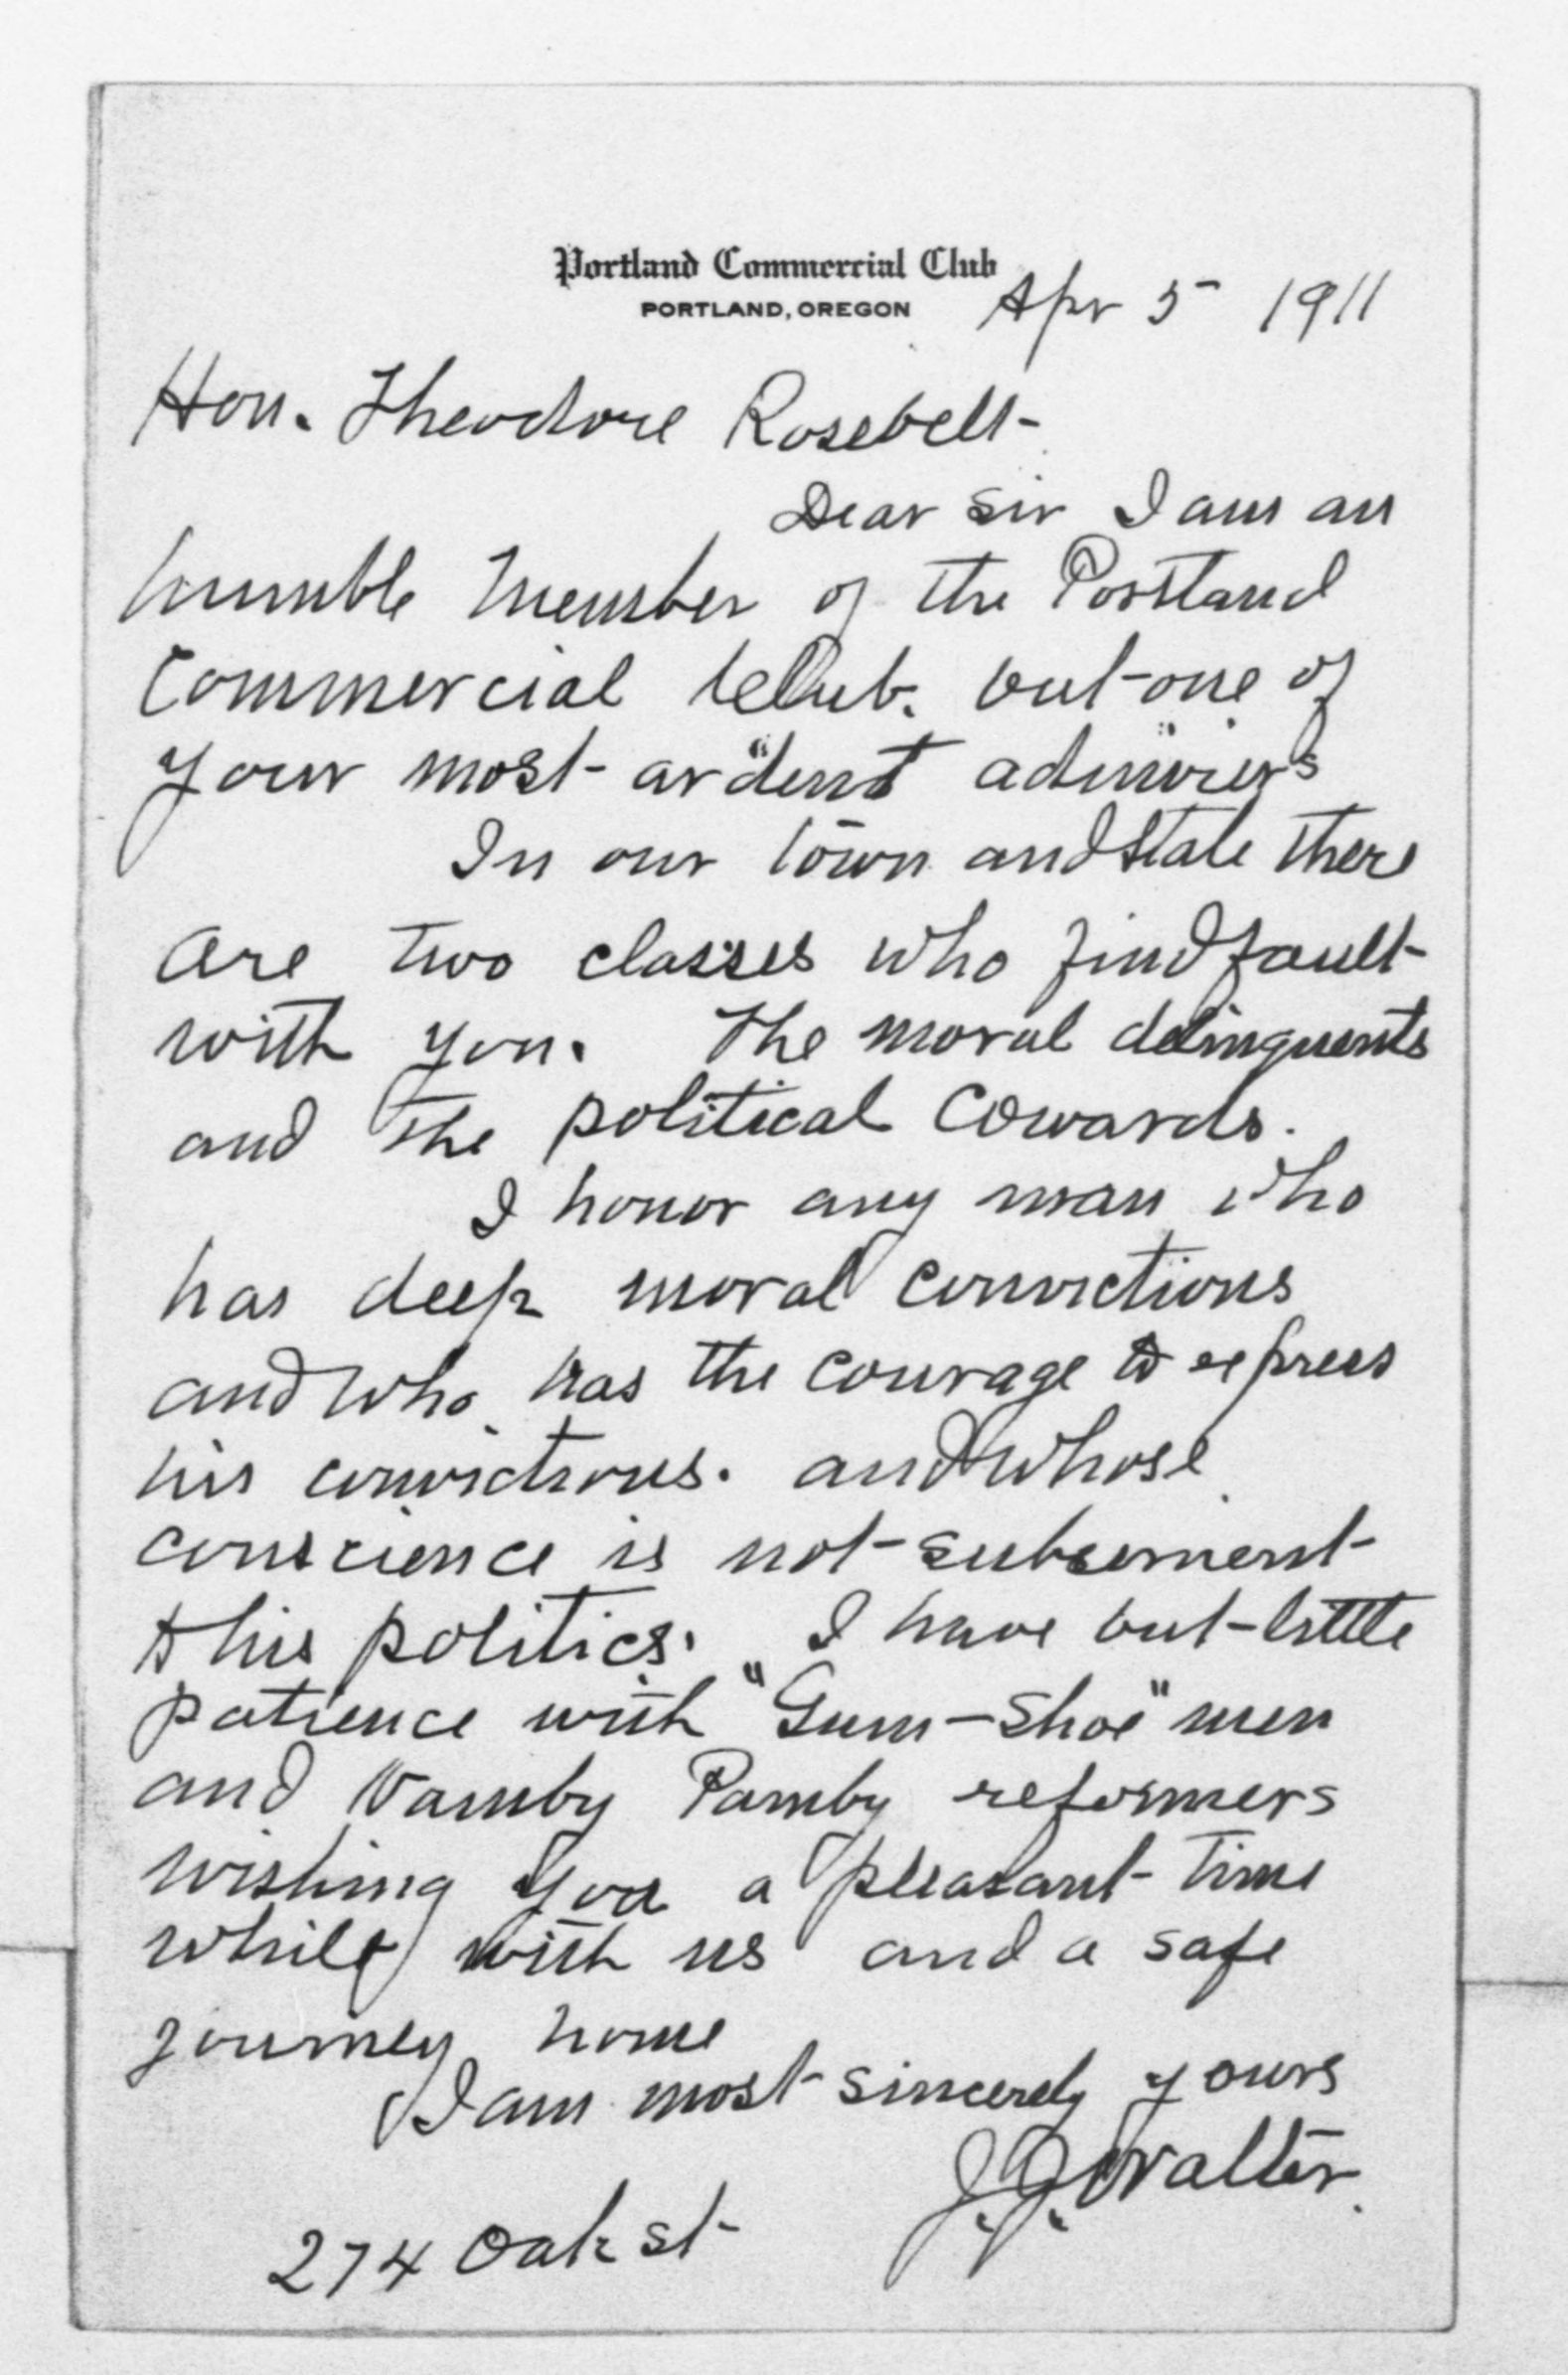 Portland Commercial Club
PORTLAND, OREGON Apr 5 1911
Hon. Theodore Rosebelt
Dear Sir I am an
humble Member of the Portland
Commercial Club. but one of
your most "ardent admirers"
In our town and State there
are two classes who find fault
with you. The moral delinquents
and the political Cowards.
I honor any man who
has deep moral convictions
and who has the courage to express
his convictions. and whose
conscience is not subservient
to his politics. I have but little
patience with "Gum-Shoe" men
and Namby Pamby reformers
wishing you a pleasant time
while with us and a safe
journey home
I am most sincerely yours
J. J. Walter
274 Oak st